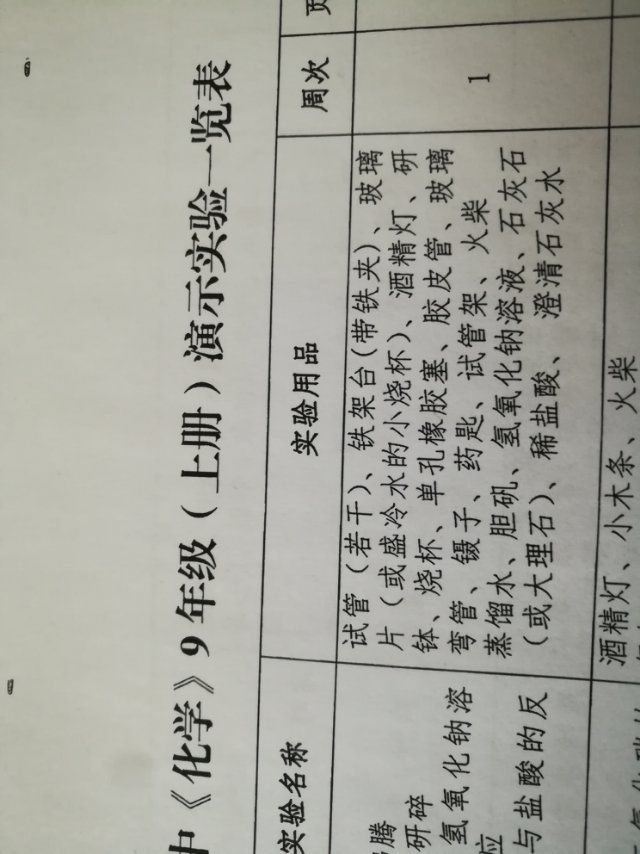 中《化学》9年级（上册）演示实验一览表
实验名称 实验用品 周次
研碎
氢氧化钠溶
应
与盐酸的反
试管（若干）、铁架台(带铁夹)、玻璃
片（或盛冷水的小烧杯）、酒精灯、研
钵、烧杯、单孔橡胶塞、胶皮管、玻璃
弯管、镊子、药匙、试管架、火柴
蒸馏水、胆矾、氢氧化钠溶液、石灰石
（或大理石）、稀盐酸、澄清石灰水
1
酒精灯、小木条、火柴